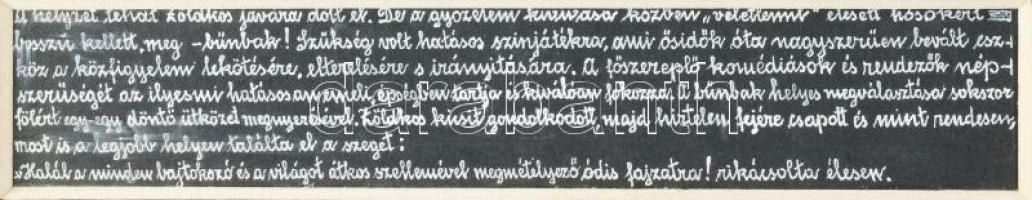 a helyzet tehát Zoldkos javára dőlt el. De a győzelem kivívása közben „véletlenül" elesett hősökért
bosszú kellett, meg - bűnbak! Szükség volt hatásos szinjátékra, ami ősidők óta nagyszerűen bevált esz-
köz a közfigyelem lekötésére, elterelésére s irányitására. A főszereplő komédiások és rendezők nép-
szerüségét az ilyesmi hatásosan emeli, épségben tartja és kiválóan fokozza. A bűnbak helyes megválasztása sokszor
fölért egy-egy döntő ütközet megnyerésével. Zoldkos kicsit gondolkodott, majd hirtelen fejére csapott és mint rendesen,
most is a legjobb helyen találta el a szeget:
»Halál a minden bajtokozó és a világot átkos szellemével megmételyező ódis fajzatra! rikácsolta élesen.
darabanth